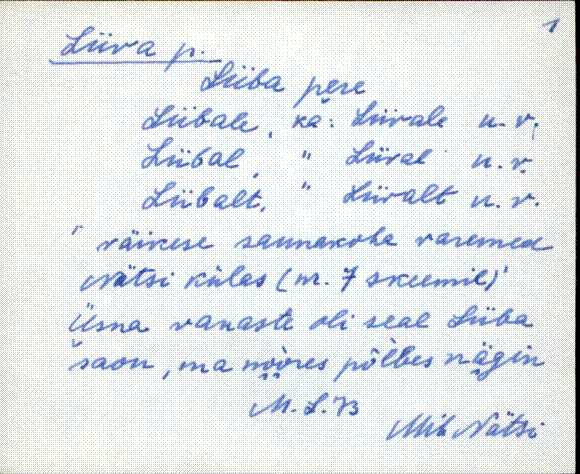 1
Liiva p.
Liiba pere
Liibale, ka: Liivale u. v.
Liibal, " Liival u. v.
Liibalt, " Liivalt u. v.
" väikese saunakoha varemed
Nätsi külas (nr. 7 skeemil)"
Üsna vanaste oli seal Liiba
saon, ma noores põlbes nägin
M. L. 73
Mih Nätsi